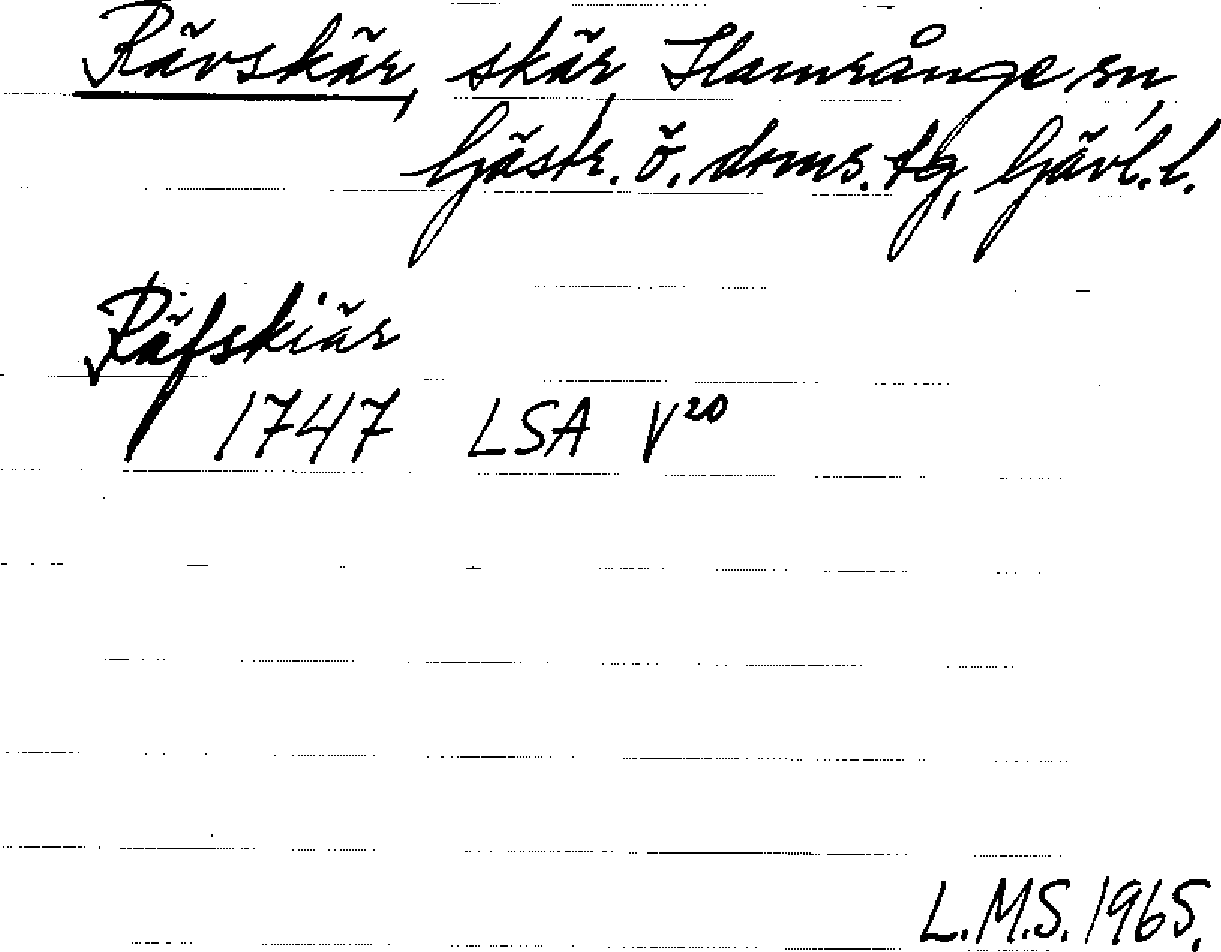 Rävskär, skär, Hamrånge sn,
Gästr. ö. doms. tg, Gävl. l.
Räfskiär
1747 LSA V²⁰
L.M.S. 1965.